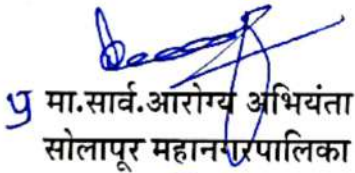 मा.सार्व.आरोग्य अभियंता
सोलापूर महानगरपालिका